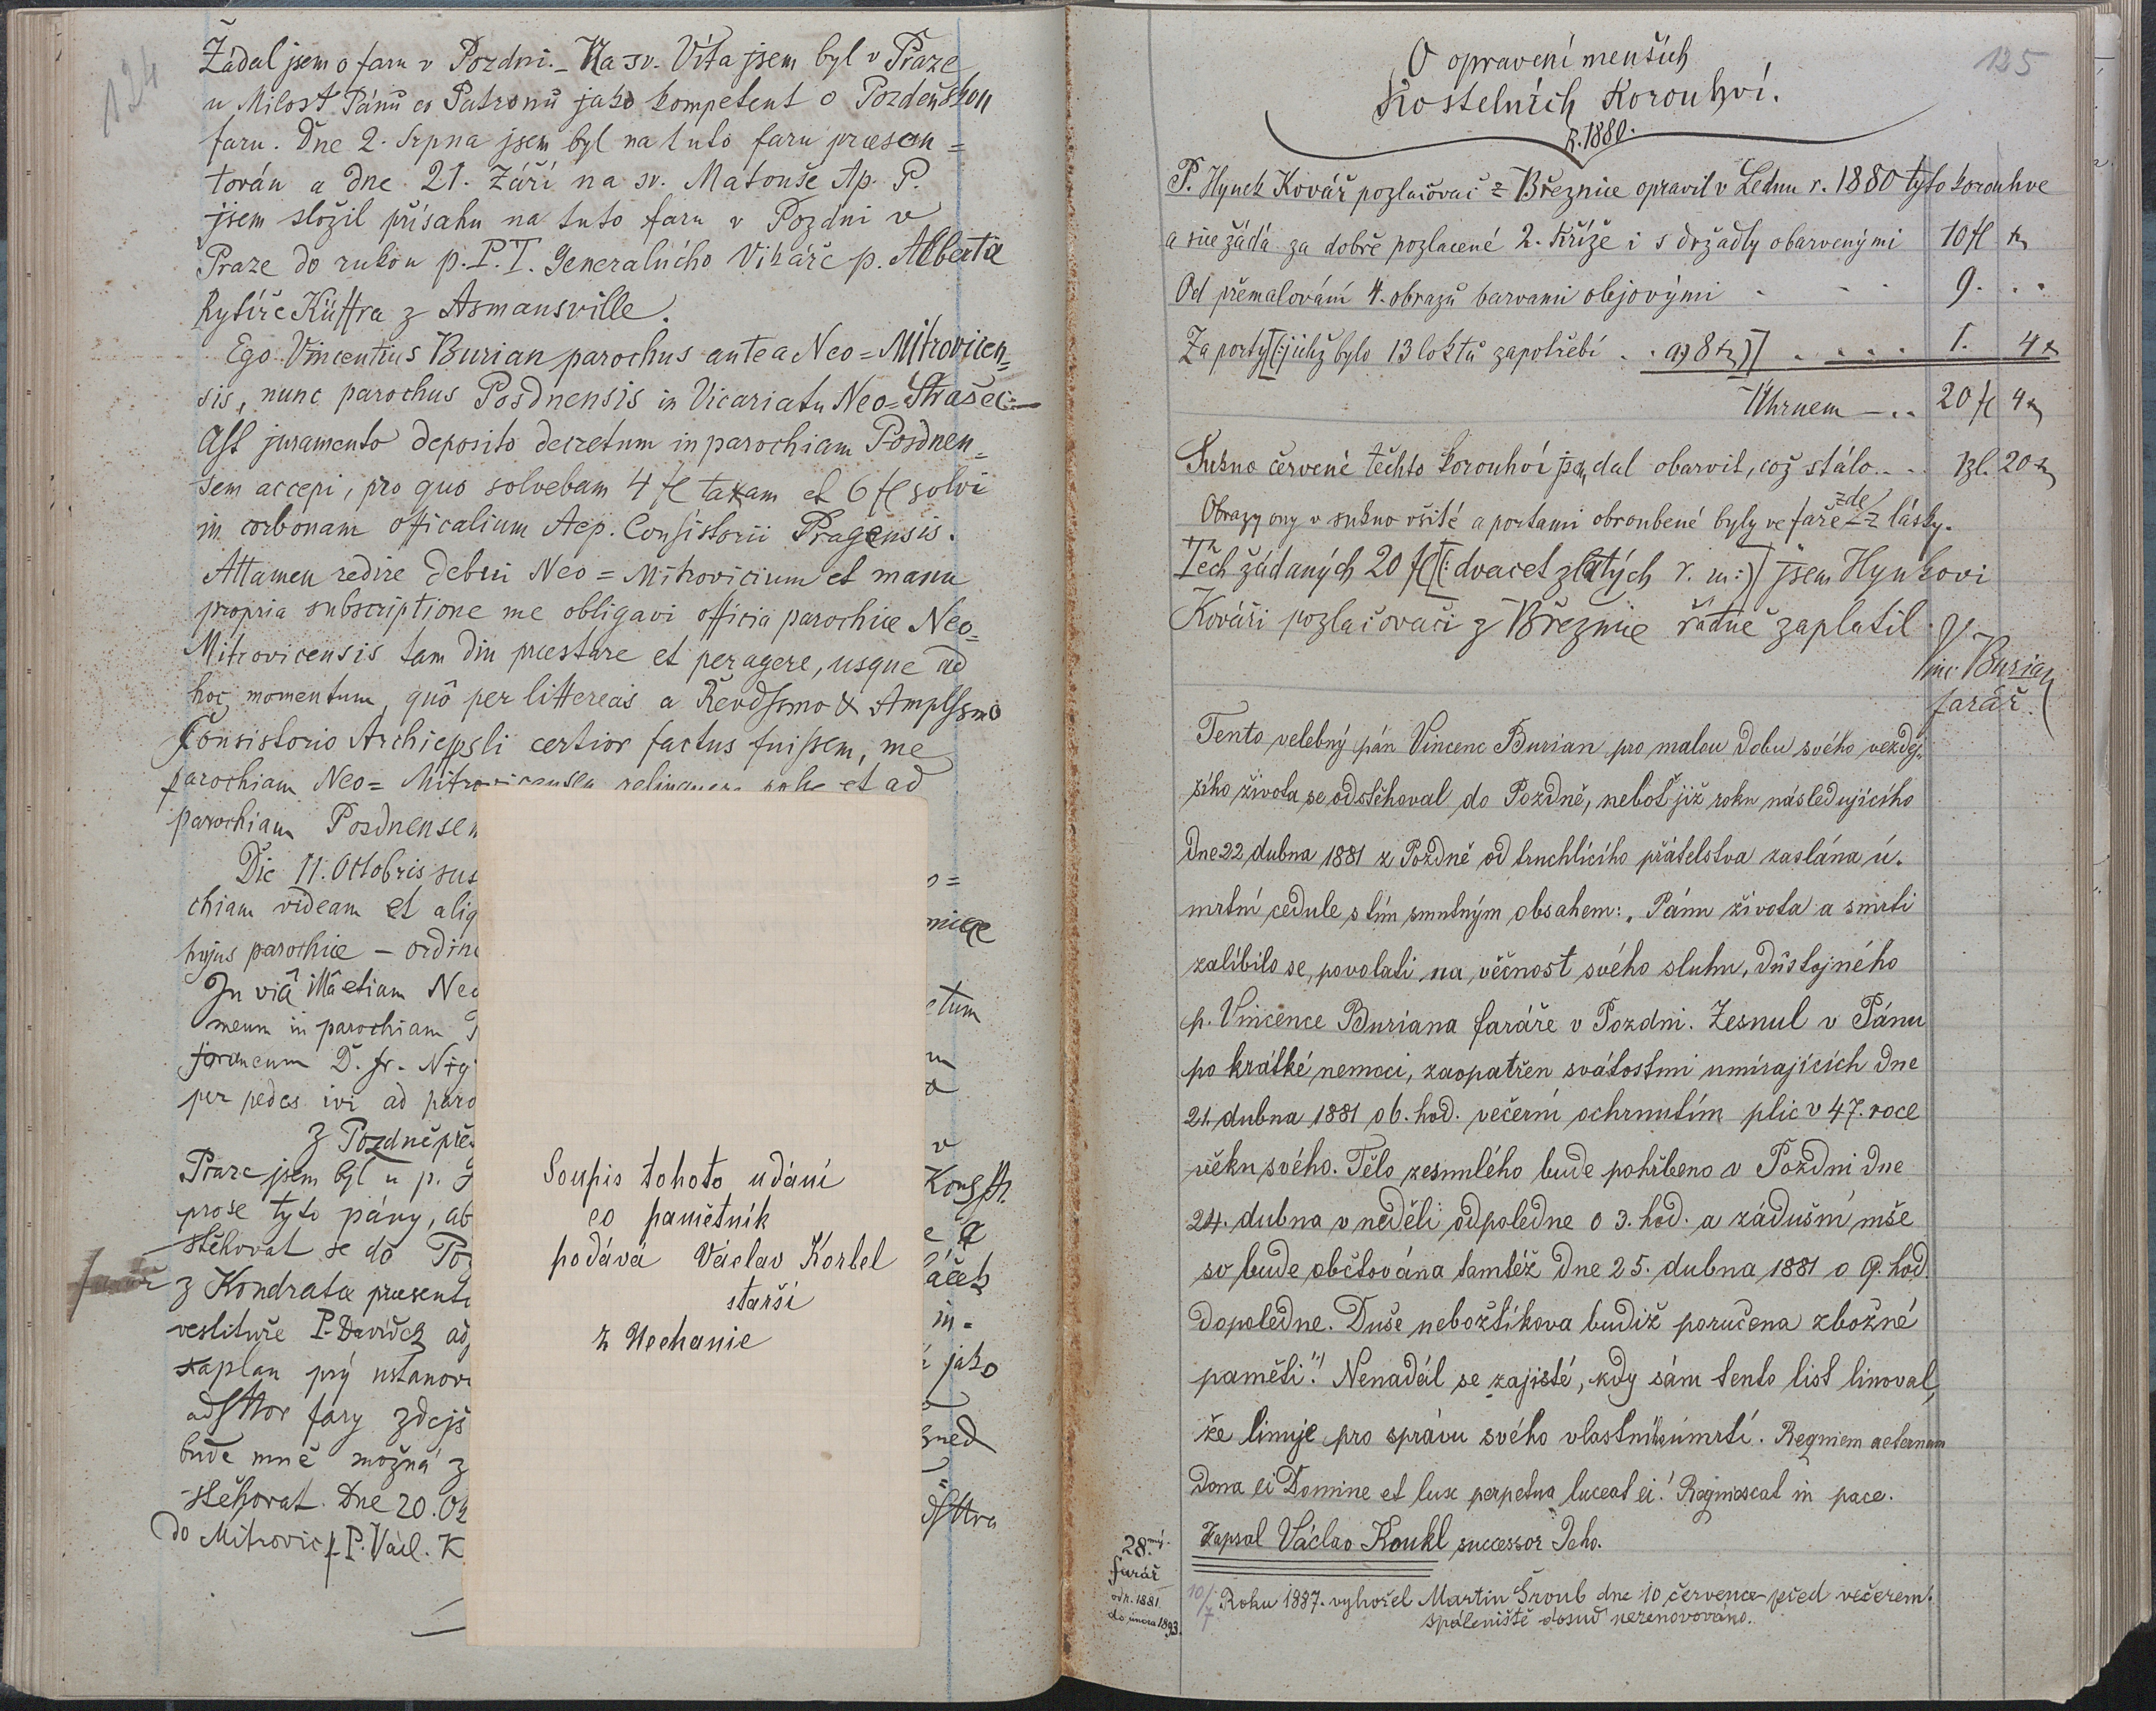 124
Žádal jsem o faru v Pozdni. – Na sv. Víta jsem byl v Praze
u Milost Pánů co Patronů jako kompetent o Pozdeňskou
faru. Dne 2. Srpna jsem byl na tuto faru praesen=
tován a dne 21. Září na sv. Matouše Ap. P.
jsem složil přísahu na tuto faru v Pozdni v
Praze do rukou p. P. T. Generalního Vikáře p. Alberta
Rytíře Küffra z Asmansville.
Ego Vincentius Burian parochus antea Neo=Mitrovicen=
sis, nunc parochus Posdnensis in Vicariatu Neo=Strašec:
Ast juramento deposito decretum in parochiam Posdnen=
sem accepi, pro quo solvebam 4 fl taxam et 6 fl solvi
in corbonam officalium Aep. Consistorii Pragensis.
Attamen redire debui Neo=Mitrovicium et manu
propria subscriptione me obligavi officia parochiae Neo=
Mitrovicensis tam diu praestare et peragere, usque ad
hoc momentum, quô per littereas a Revdssmo & Amplssmo
Consistorio Archieppsli certior factus fuissem, me
parochiam Neo=Mitrovicensem relinquere posse et ad
parochiam Posdnensem
Die 11. Octobris sus
chiam videam et aliq
hujus parochiae – ordin
In viâ illâ etiam Neo
meum in parochiam
per pedes ivi ad paro
Z Pozdně při
Praze jsem byl u p.
proše tyto pány, ab
stěhovat se do Po
farář
z Kondrata praesent
vestituře P. Davídek
kaplan prý ustanov
adsttor fary zdejš
bude mně možná z
stěhovat. Dne 20. Ok
do Mitrovic p. P. Václ. K
o=
niae
etum
m
a
v
Kons
e a
áček
in=
jako
hned
Soupis tohoto udání
co pamětník
podává Václav Kortel
starší
z Uochanie
125
O opravení menších
Kostelních Korouhví.
R. 1880.
P. Hynek Kovář pozlačovač z Březnice opravil v Letnu r. 1880 tyto korouhve
a sice žádá za dobře pozlacené 2. Kříže i s držadly obarvenými 10 fl k
Od přemalování 4. obrazů barvami olejovými - - - 9. . .
Za porty [(:jichž bylo 13 loktů zapotřebí . . a) 8 k)] . . . . . 1. 4 k
Úhrnem – . . 20 fl 4 k
Sukno červené těchto korouhví jsem dal obarvit, což stálo . . . 1 zl. 20 k
Obrazy ony v sukno všité a portami obroubené byly ve faře zde z lásky.
Těch žádaných 20 fl [(:dvacet zlatých r. m:)] jsem Hynkovi
Kováři pozlačovači z Březnice řádně zaplatil.
Vinc Burian
farář.
Tento velebný pán Vincenc Burian pro malou dobu svého vezdej-
šího života se odstěhoval do Pozdně, neboť již roku následujícího
dne 22 dubna 1881 z Pozdně od truchlícího přátelstva zaslána ú-
mrtní cedule s tím smutným obsahem: „Pánu života a smrti
zalíbilo se, povolati na věčnost svého sluhu, důstojného
p. Vincence Buriana faráře v Pozdni. Zesnul v Pánu
po krátké nemoci, zaopatřen svátostmi umírajících dne
21. dubna 1881 o 6. hod. večerní ochrnutím plic v 47. roce
věku svého. Tělo zesnulého bude pohřbeno v Pozdni dne
24. dubna v neděli odpoledne o 3. hod. a zádušní mše
sv bude obětována tamtéž dne 25. dubna 1881 o 9. hod.
dopoledne. Duše nebožtíkova budiž poručena zbožné
paměti!" Nenadál se zajisté, kdy sám tento list linoval,
že linuje pro správu svého vlastního úmrtí. Requiem aeternam
dona ei Domine et lux perpetua luceat ei! Requiescat in pace.
Zapsal Václav Koukl successor Jeho.
28.mý.
farář
od r. 1881
do února 1893.
10/7 Roku 1887. vyhořel Martin Šroub dne 10 července před večerem.
spáleniště dosud nerenovováno.